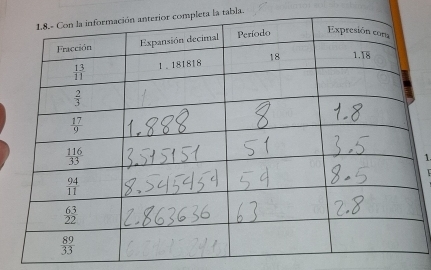 1.8.- Con la información anterior completa la tabla.
Fracción Expansión decimal Período Expresión
13/11 1.181818 18 1.18
2/3
17/9 1.888 8 1.8
116/33 3.515151 51 3.5
94/11 8.545454 54 8.5
63/22 2.863636 63 2.8
89/33